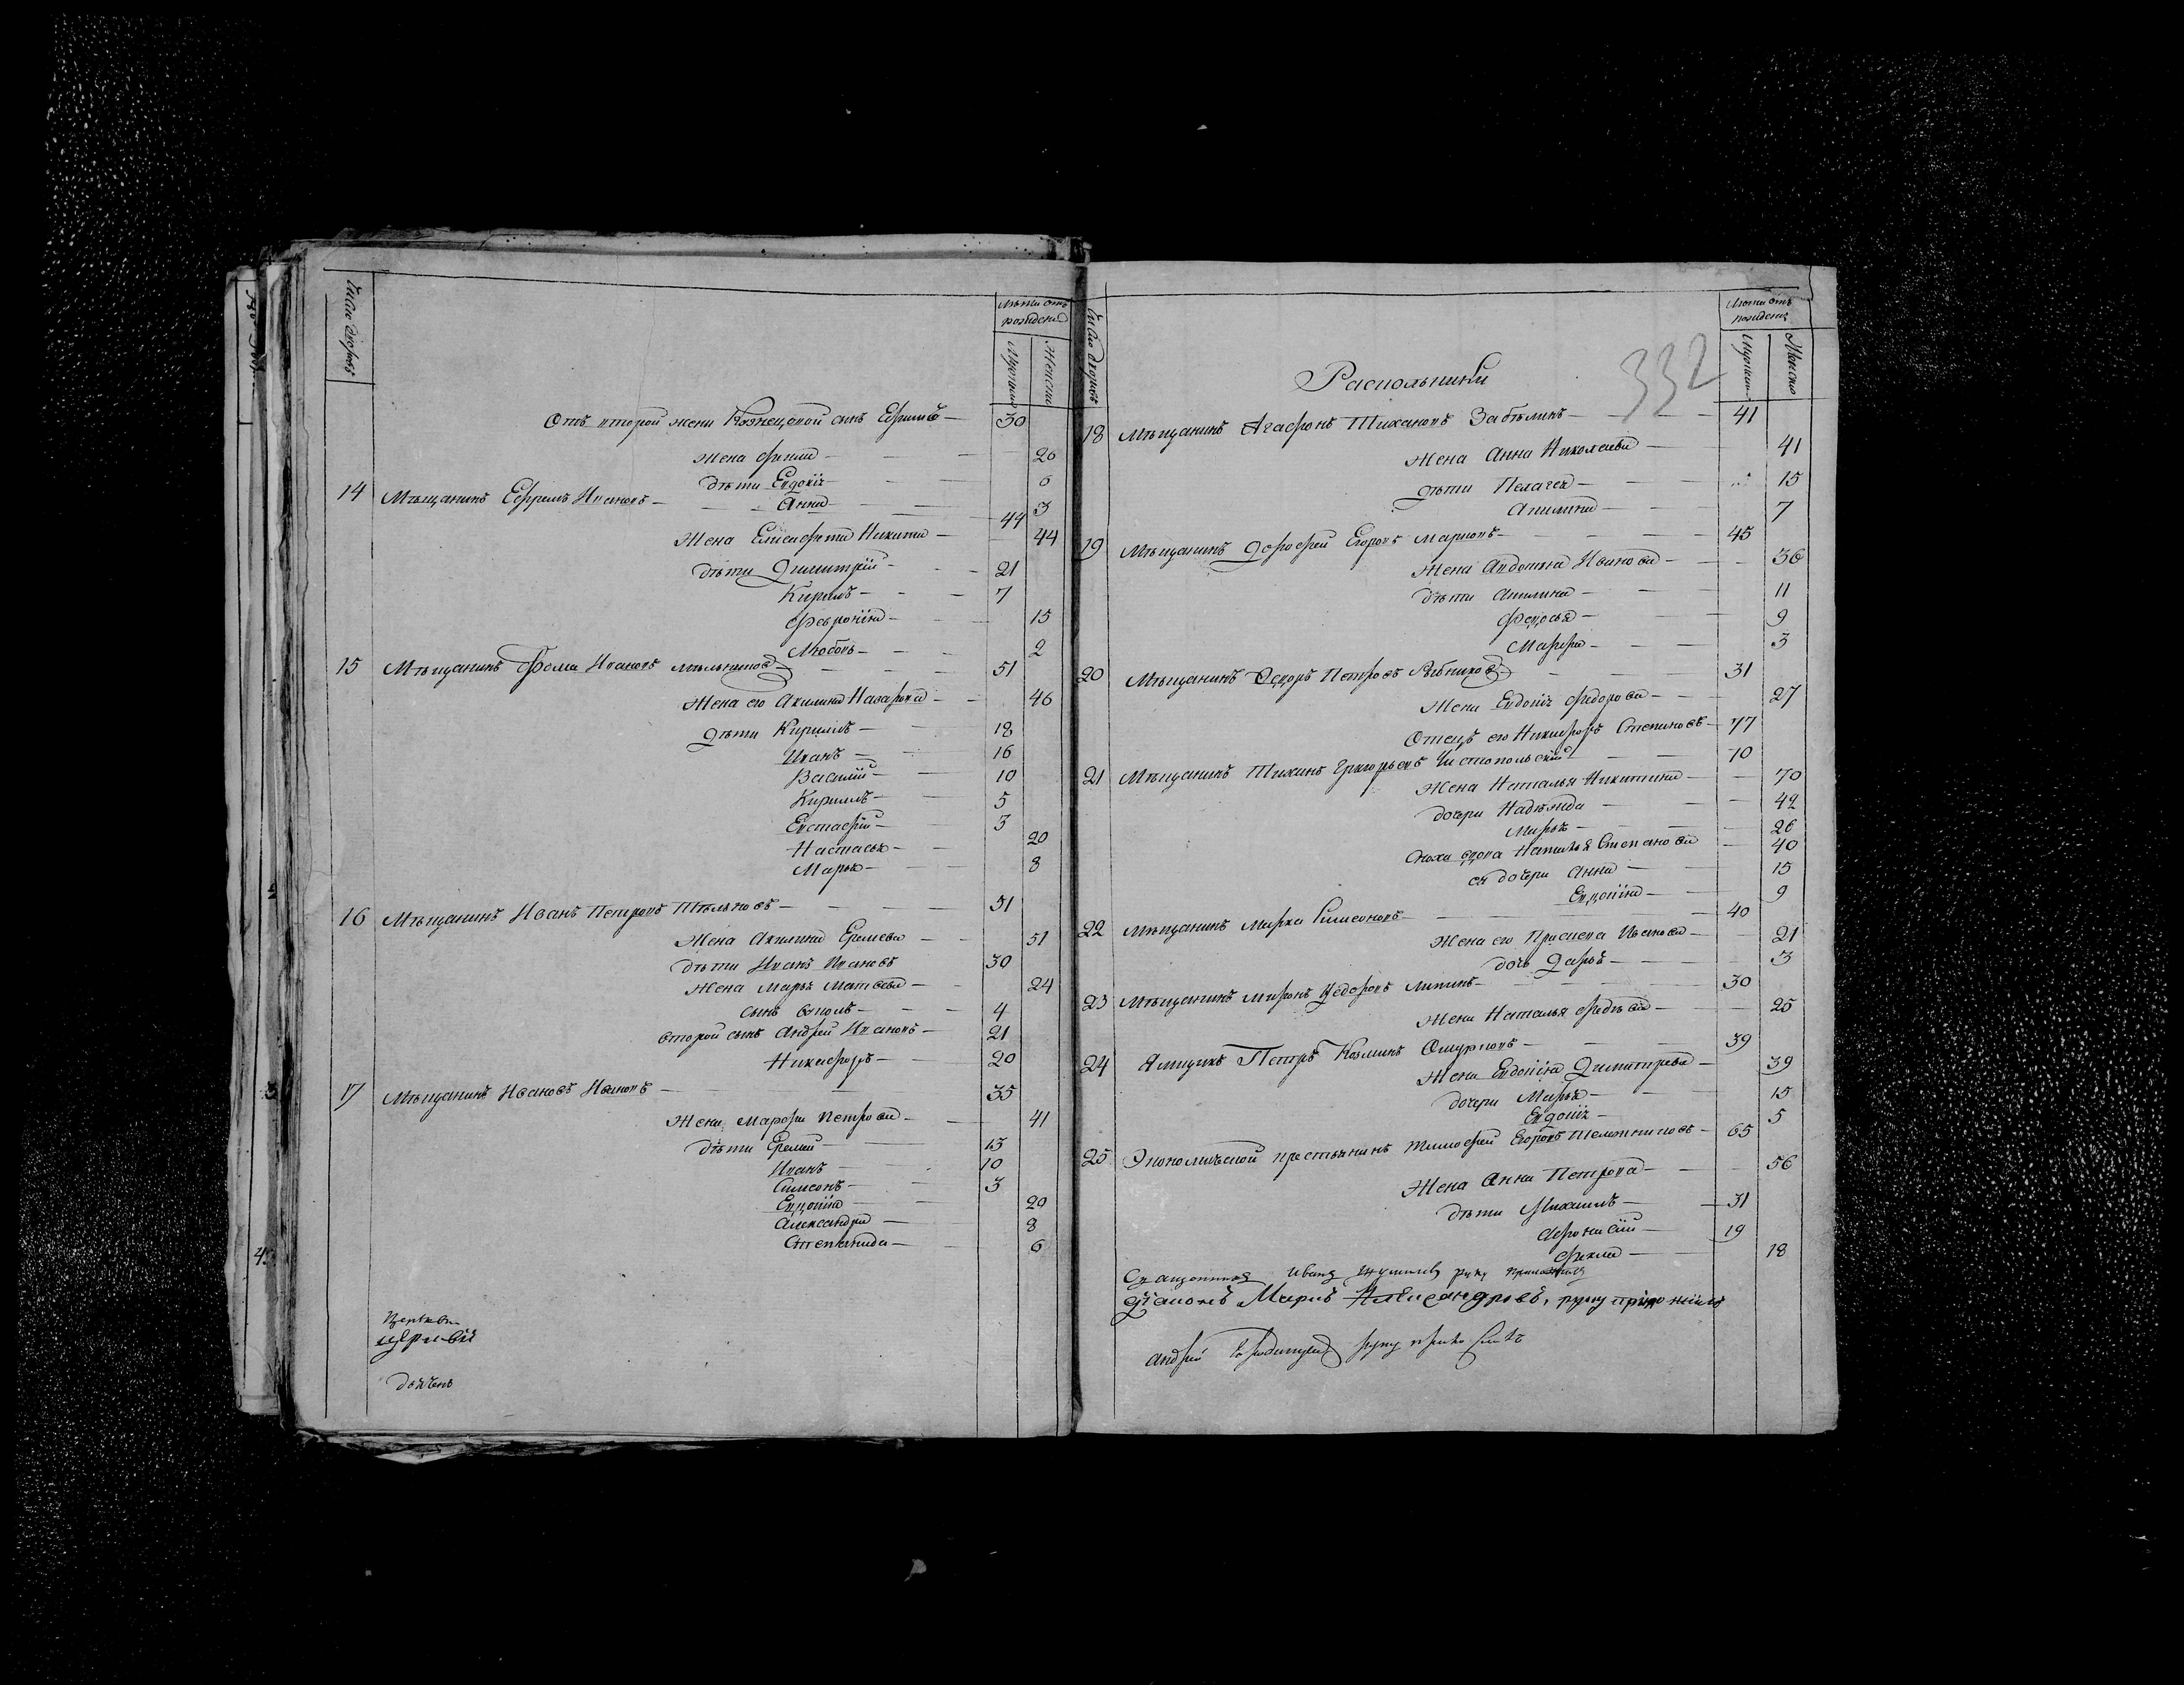 Число дворовъ
Лѣты отъ рожденія
Мужска
Женска
Отъ второй жены Кознецовой сынъ Ефимъ — 30
Жена Фекла — 26
дѣти Евдокія — 6
Анна — 3
14 Мѣщанинъ Ефремъ Ивановъ — 44
Жена Елисафета Никити — 44
дѣти Димитрій — 21
Кирилъ — 7
Февронія — 15
Любовь — 2
15 Мѣщанинъ Фома Ивановъ Мѣльниковъ — 51
Жена его Акилина Назарова — 46
дѣти Кирилъ — 18
Иванъ — 16
Василій — 10
Кирилъ — 5
Евстафій — 3
Настасья — 20
Марья — 8
16 Мѣщанинъ Иванъ Петровъ Тѣльновъ — 51
Жена Акилина Еремеева — 51
дѣти Иванъ Ивановъ 30
Жена Марья Матвева — 24
сынъ — 4
второй сынъ Андрей Ивановъ — 21
Никифоръ — 20
17 Мѣщанинъ Ивановъ Ивановъ — 35
Жена Марфа Петрова — 41
дѣти Еремей — 13
Иванъ — 10
Симеонъ — 3
Евдокія — 20
Александра — 8
Степанида — 6
Церкви
церкви
Число дворовъ
Лѣты отъ рожденія
Мужска
Женска
332
Раскольники
18 Мѣщанинъ Агафонъ Тихановъ Забѣлинъ — 41
Жена Анна Николаева — 41
дѣти Пелагея — 15
Акилина — 7
19 Мѣщанинъ Дорофей Егоровъ Марковъ — 45
Жена Авдотья Иванова — 36
дѣти Акилина — 11
Федосья — 9
Марфа — 3
20 Мѣщанинъ Федоръ Петровъ — 31
Жена Евдокія Федорова — 27
Отецъ его Никифоръ Степановъ — 77
21 Мѣщанинъ Тиханъ Григорьевъ Чистопольскій — 70
Жена Наталья Никитина — 70
дочери Надежда — 42
Марья — 26
сноха вдова Наталья Степанова — 40
ея дочери Анна — 15
Евдокія — 9
22 Мѣщанинъ Марка Симеоновъ — 40
Жена его Прасковья Иванова — 21
дочь Дарья — 3
23 Мѣщанинъ Миронъ Федоровъ Липинъ — 30
Жена Наталья — 25
24 Ямщикъ Петръ Козминъ — 39
Жена Евдокія Димитрева — 39
дочери Марья — 15
Евдокія — 5
25 Экономической крестьянинъ Тимофей Егоровъ — 65
Жена Анна Петрова — 56
дѣти Михаилъ — 31
Афонасій — 19
Фекла — 18
Священникъ Иванъ руку приложилъ
діаконъ Марко Александровъ, руку приложилъ
Андрей руку приложилъ